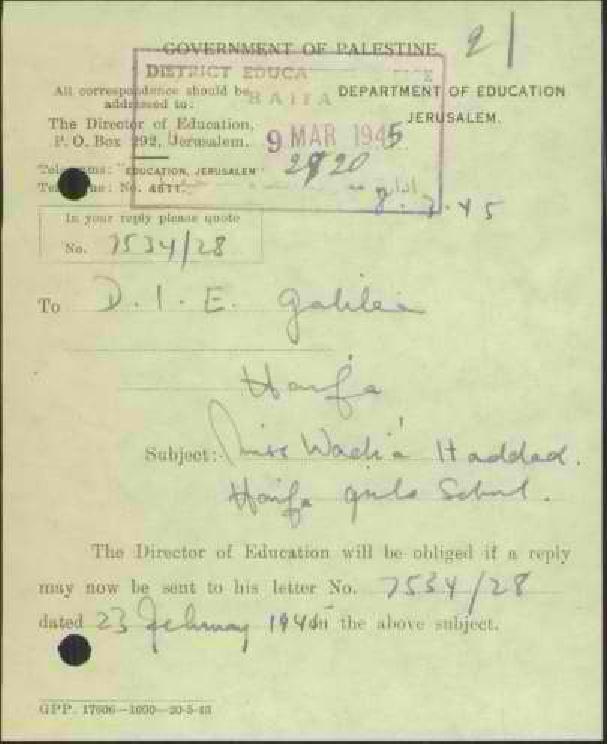 GOVERNMENT OF PALESTINE
21
DISTRICT EDUCA
HAIFA
9 MAR 1945
2920
All correspondence should be
addressed to:
The Director of Education,
P. O. Box 292, Jerusalem.
Telegrams: "EDUCATION, JERUSALEM"
No. 4611.
DEPARTMENT OF EDUCATION
JERUSALEM.
8.3.45
In your reply please quote
No. 7534/28
To D.I.E. Galilee
Haifa
Subject: Miss Wadi'a Haddad.
Haifa girls School.
The Director of Education will be obliged if a reply
may now be sent to his letter No. 7534/28
dated 23 February 1945 on the above subject.
GPP. 17606—1000—20-5-43